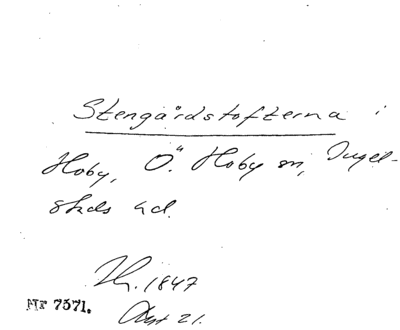 Stengårdstofterna i
Hoby, Ö. Hoby sn, Ingel-
stads hd.
1847
Nr 7571.
Akt 21.